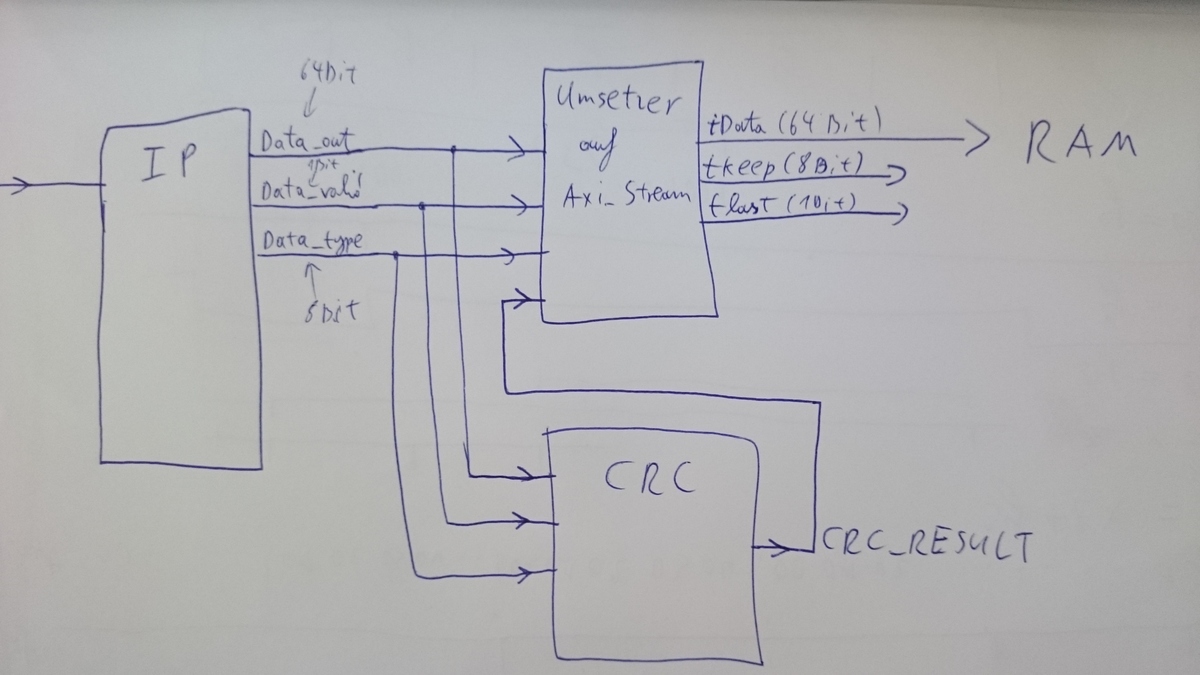 64Bit
IP
Data_out
1Bit
Data_valid
Data_type
8Bit
Umsetzer
auf
Axi_Stream
tData (64 Bit)
tkeep (8Bit)
tlast (1Bit)
RAM
CRC
CRC_RESULT